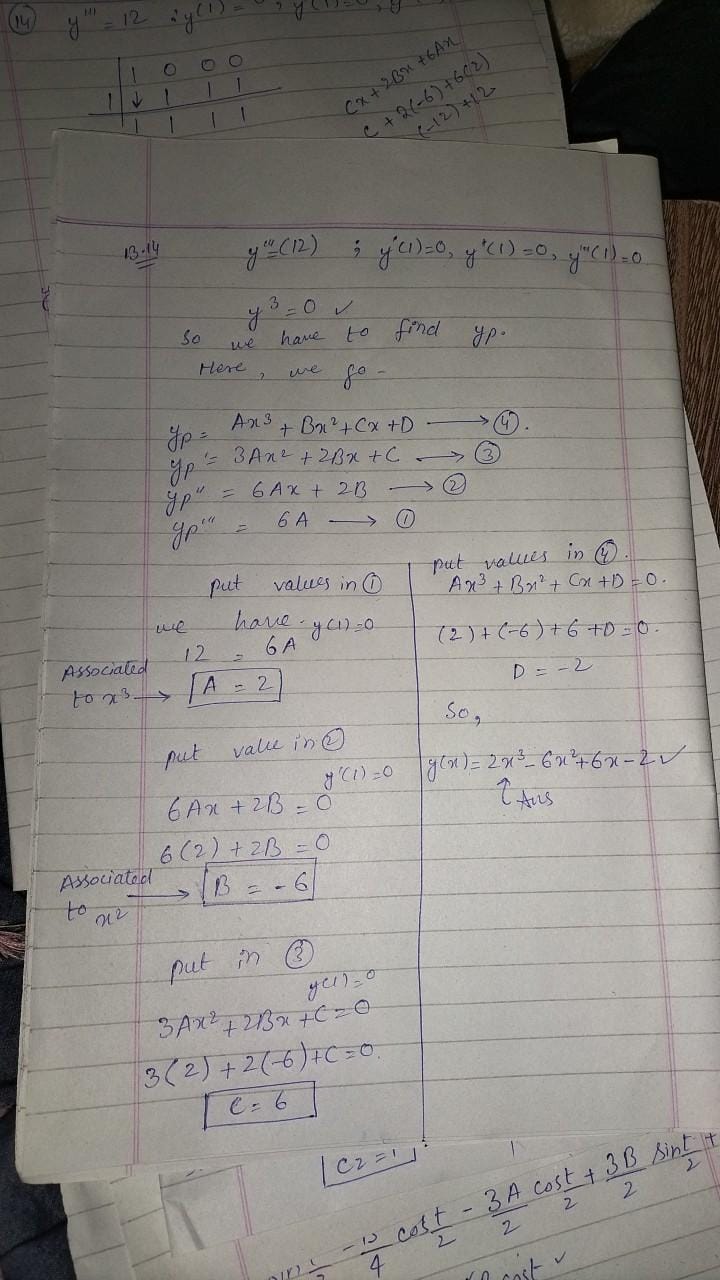 14 y''' = 12 ; y(1) =
1 0 0 0
1 ↓ 1 1 1
1 1 1 1
Cx + 2Bx + 6Ax
C + 2(-6) + 6(2)
(-12) + 12
13.14 y'''=(12) ; y'(1)=0, y'(1)=0, y'''(1)=0
y³ = 0 ✓
So we have to find yp.
Here, we go -
yp = Ax³ + Bx² + Cx + D → ④.
yp' = 3Ax² + 2Bx + C → ③
yp'' = 6Ax + 2B → ②
yp''' = 6A → ①
put values in ①
we have y(1)=0
12 = 6A
Associated
to x³ → A = 2
put value in ②
y'(1)=0
6Ax + 2B = 0
6(2) + 2B = 0
Associated
to x² → B = -6
put in ③
y(1)=0
3Ax² + 2Bx + C = 0
3(2) + 2(-6) + C = 0.
C = 6
put values in ④.
Ax³ + Bx² + Cx + D = 0.
(2) + (-6) + 6 + D = 0.
D = -2
So,
y(x) = 2x³ - 6x² + 6x - 2 ✓
↑ Ans
C2 = 1
cos t/2 - 3A/2 cos t/2 + 3B/2 sin t/2 +
cost ✓